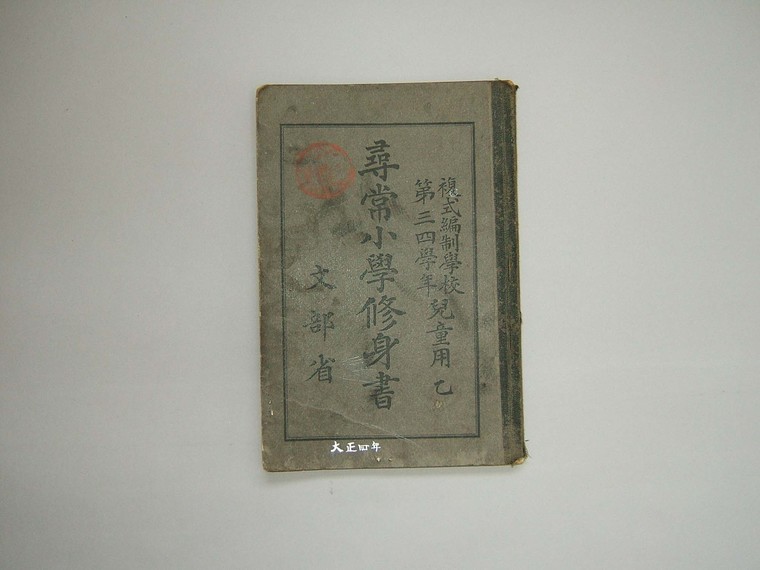 複式編制學校
第三四學年
兒童用 乙
尋常小學修身書
文部省
大正四年